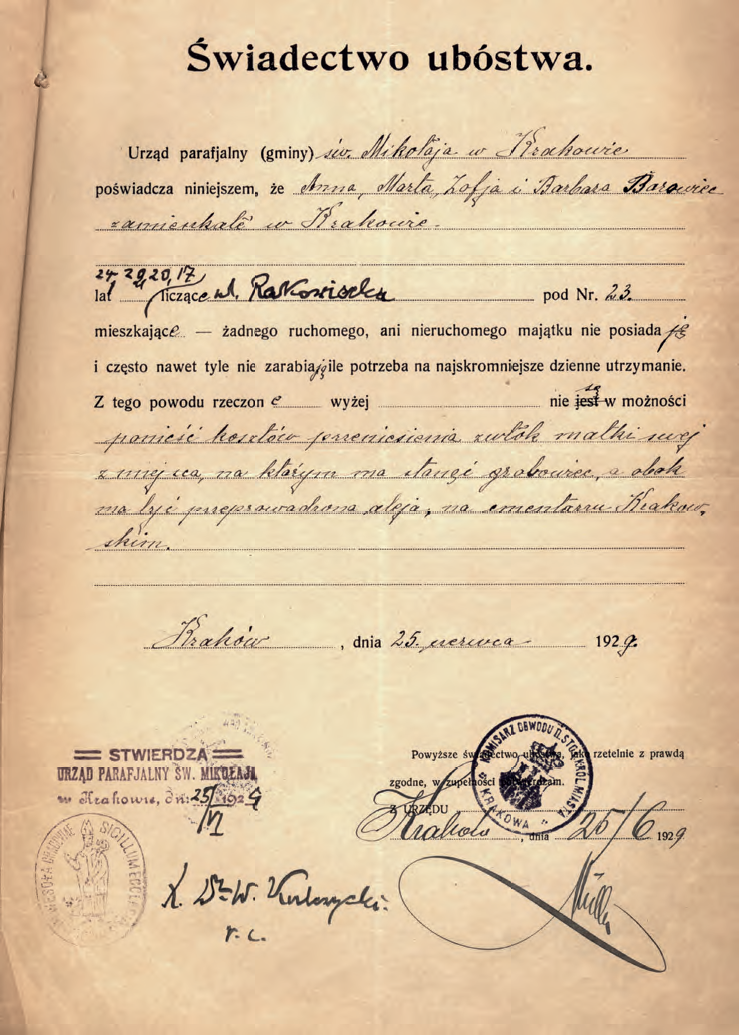 Świadectwo ubóstwa.
Urząd parafjalny (gminy) św. Mikołaja w Krakowie
poświadcza niniejszem, że Anna, Marta, Zofja i Barbara Barowiec
zamieszkałe w Krakowie.
24, 22, 20, 17
lat liczące ul. Rakowiecka pod Nr. 23.
mieszkające — żadnego ruchomego, ani nieruchomego majątku nie posiada ją
i często nawet tyle nie zarabiają ile potrzeba na najskromniejsze dzienne utrzymanie.
są
Z tego powodu rzeczon e wyżej nie jest w możności
ponieść kosztów przeniesienia zwłok matki swej
z miejsca, na którym ma stanąć grobowiec, a obok
ma być przeprowadzona aleja, na cmentarzu Krakow-
skim.
Kraków, dnia 25. czerwca 1929.
STWIERDZA
URZĄD PARAFJALNY ŚW. MIKOŁAJA
w Krakowie, dn. 25/VI 1929
Powyższe świadectwo ubóstwa, jako rzetelnie z prawdą
zgodne, w zupełności potwierdzam.
Z URZĘDU
Kraków, dnia 25/6 1929
KOMISARZ OBWODU II. STOŁ. KRÓL. MIASTA
KRAKOWA
SIGILLUM ECCLESIAE
X. Dr. W.
r. c.